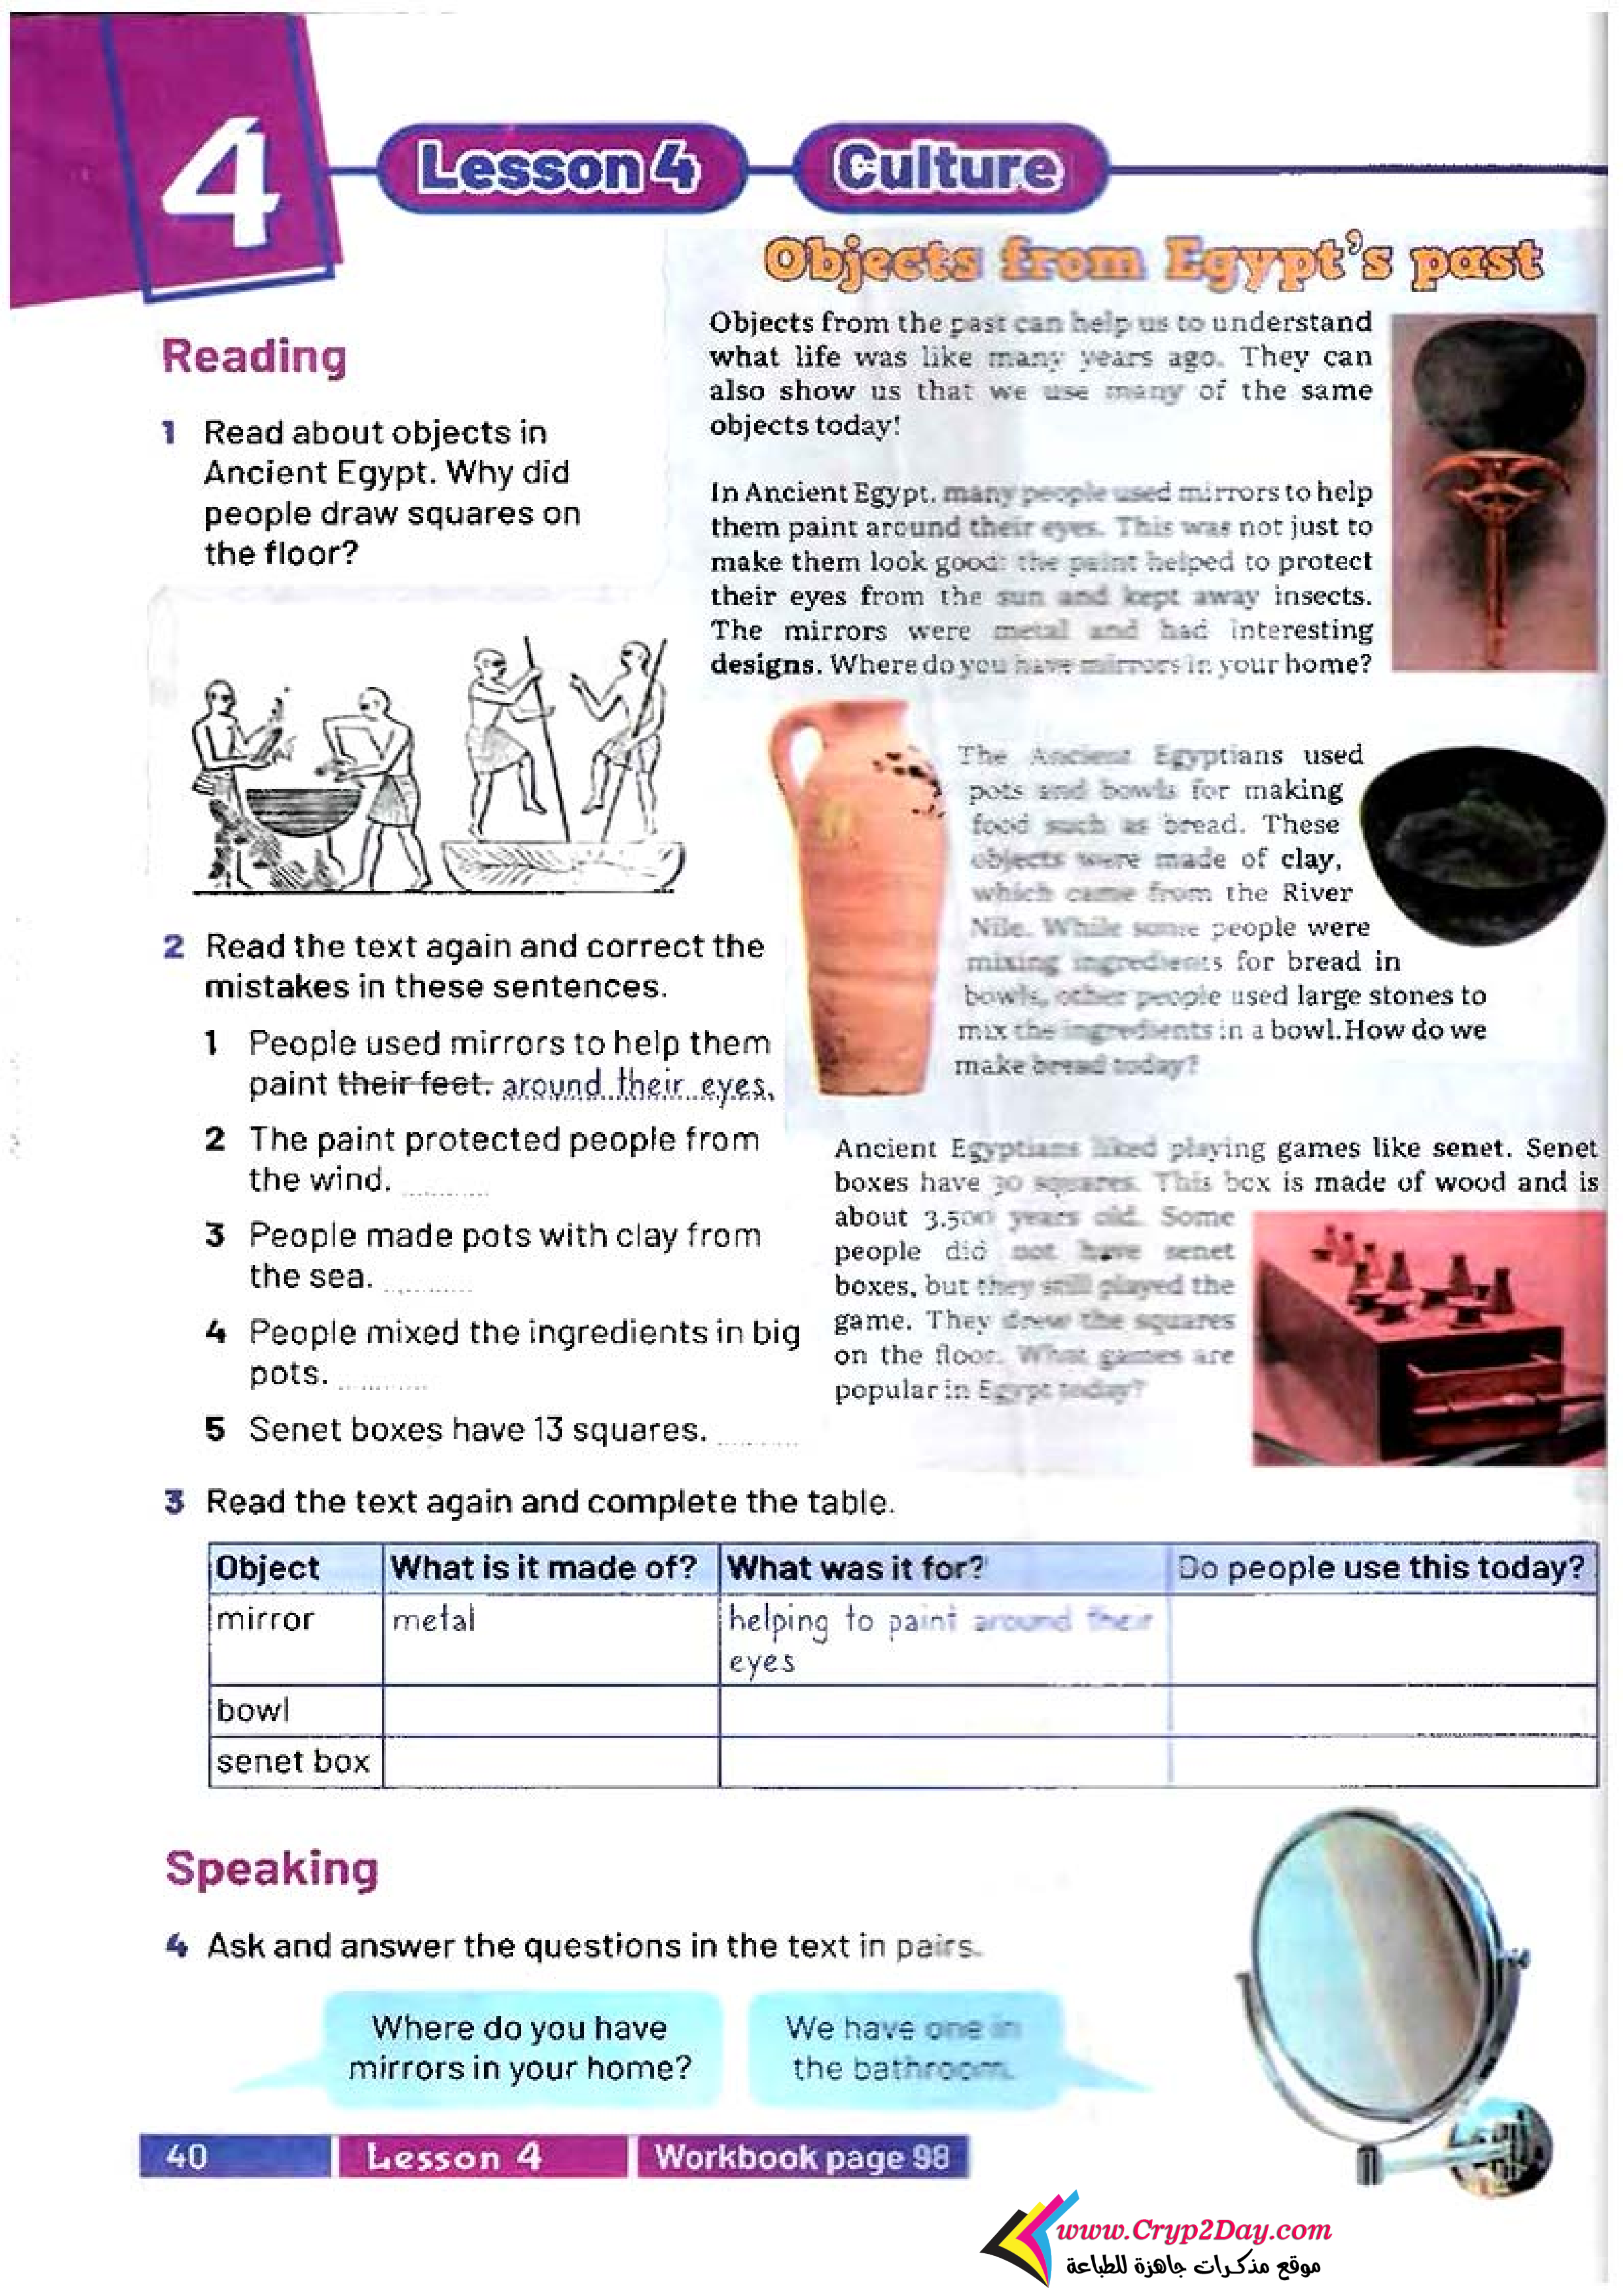 4
Lesson 4
Culture
Objects from Egypt's past
Reading
1 Read about objects in
Ancient Egypt. Why did
people draw squares on
the floor?
Objects from the past can help us to understand
what life was like many years ago. They can
also show us that we use many of the same
objects today!
In Ancient Egypt, many people used mirrors to help
them paint around their eyes. This was not just to
make them look good: the paint helped to protect
their eyes from the sun and kept away insects.
The mirrors were metal and had interesting
designs. Where do you have mirrors in your home?
The Ancient Egyptians used
pots and bowls for making
food such as bread. These
objects were made of clay,
which came from the River
Nile. While some people were
mixing ingredients for bread in
bowls, other people used large stones to
mix the ingredients in a bowl. How do we
make bread today?
Ancient Egyptians liked playing games like senet. Senet
boxes have 30 squares. This box is made of wood and is
about 3.500 years old. Some
people did not have senet
boxes, but they still played the
game. They drew the squares
on the floor. What games are
popular in Egypt today?
2 Read the text again and correct the
mistakes in these sentences.
1 People used mirrors to help them
paint their feet. around their eyes.
2 The paint protected people from
the wind. ..........
3 People made pots with clay from
the sea. ..........
4 People mixed the ingredients in big
pots. ..........
5 Senet boxes have 13 squares. ..........
3 Read the text again and complete the table.
Object What is it made of? What was it for? Do people use this today?
mirror metal helping to paint around their
eyes
bowl
senet box
Speaking
4 Ask and answer the questions in the text in pairs.
Where do you have
mirrors in your home?
We have one in
the bathroom.
40 Lesson 4 Workbook page 98
www.Cryp2Day.com
موقع مذكرات جاهزة للطباعة